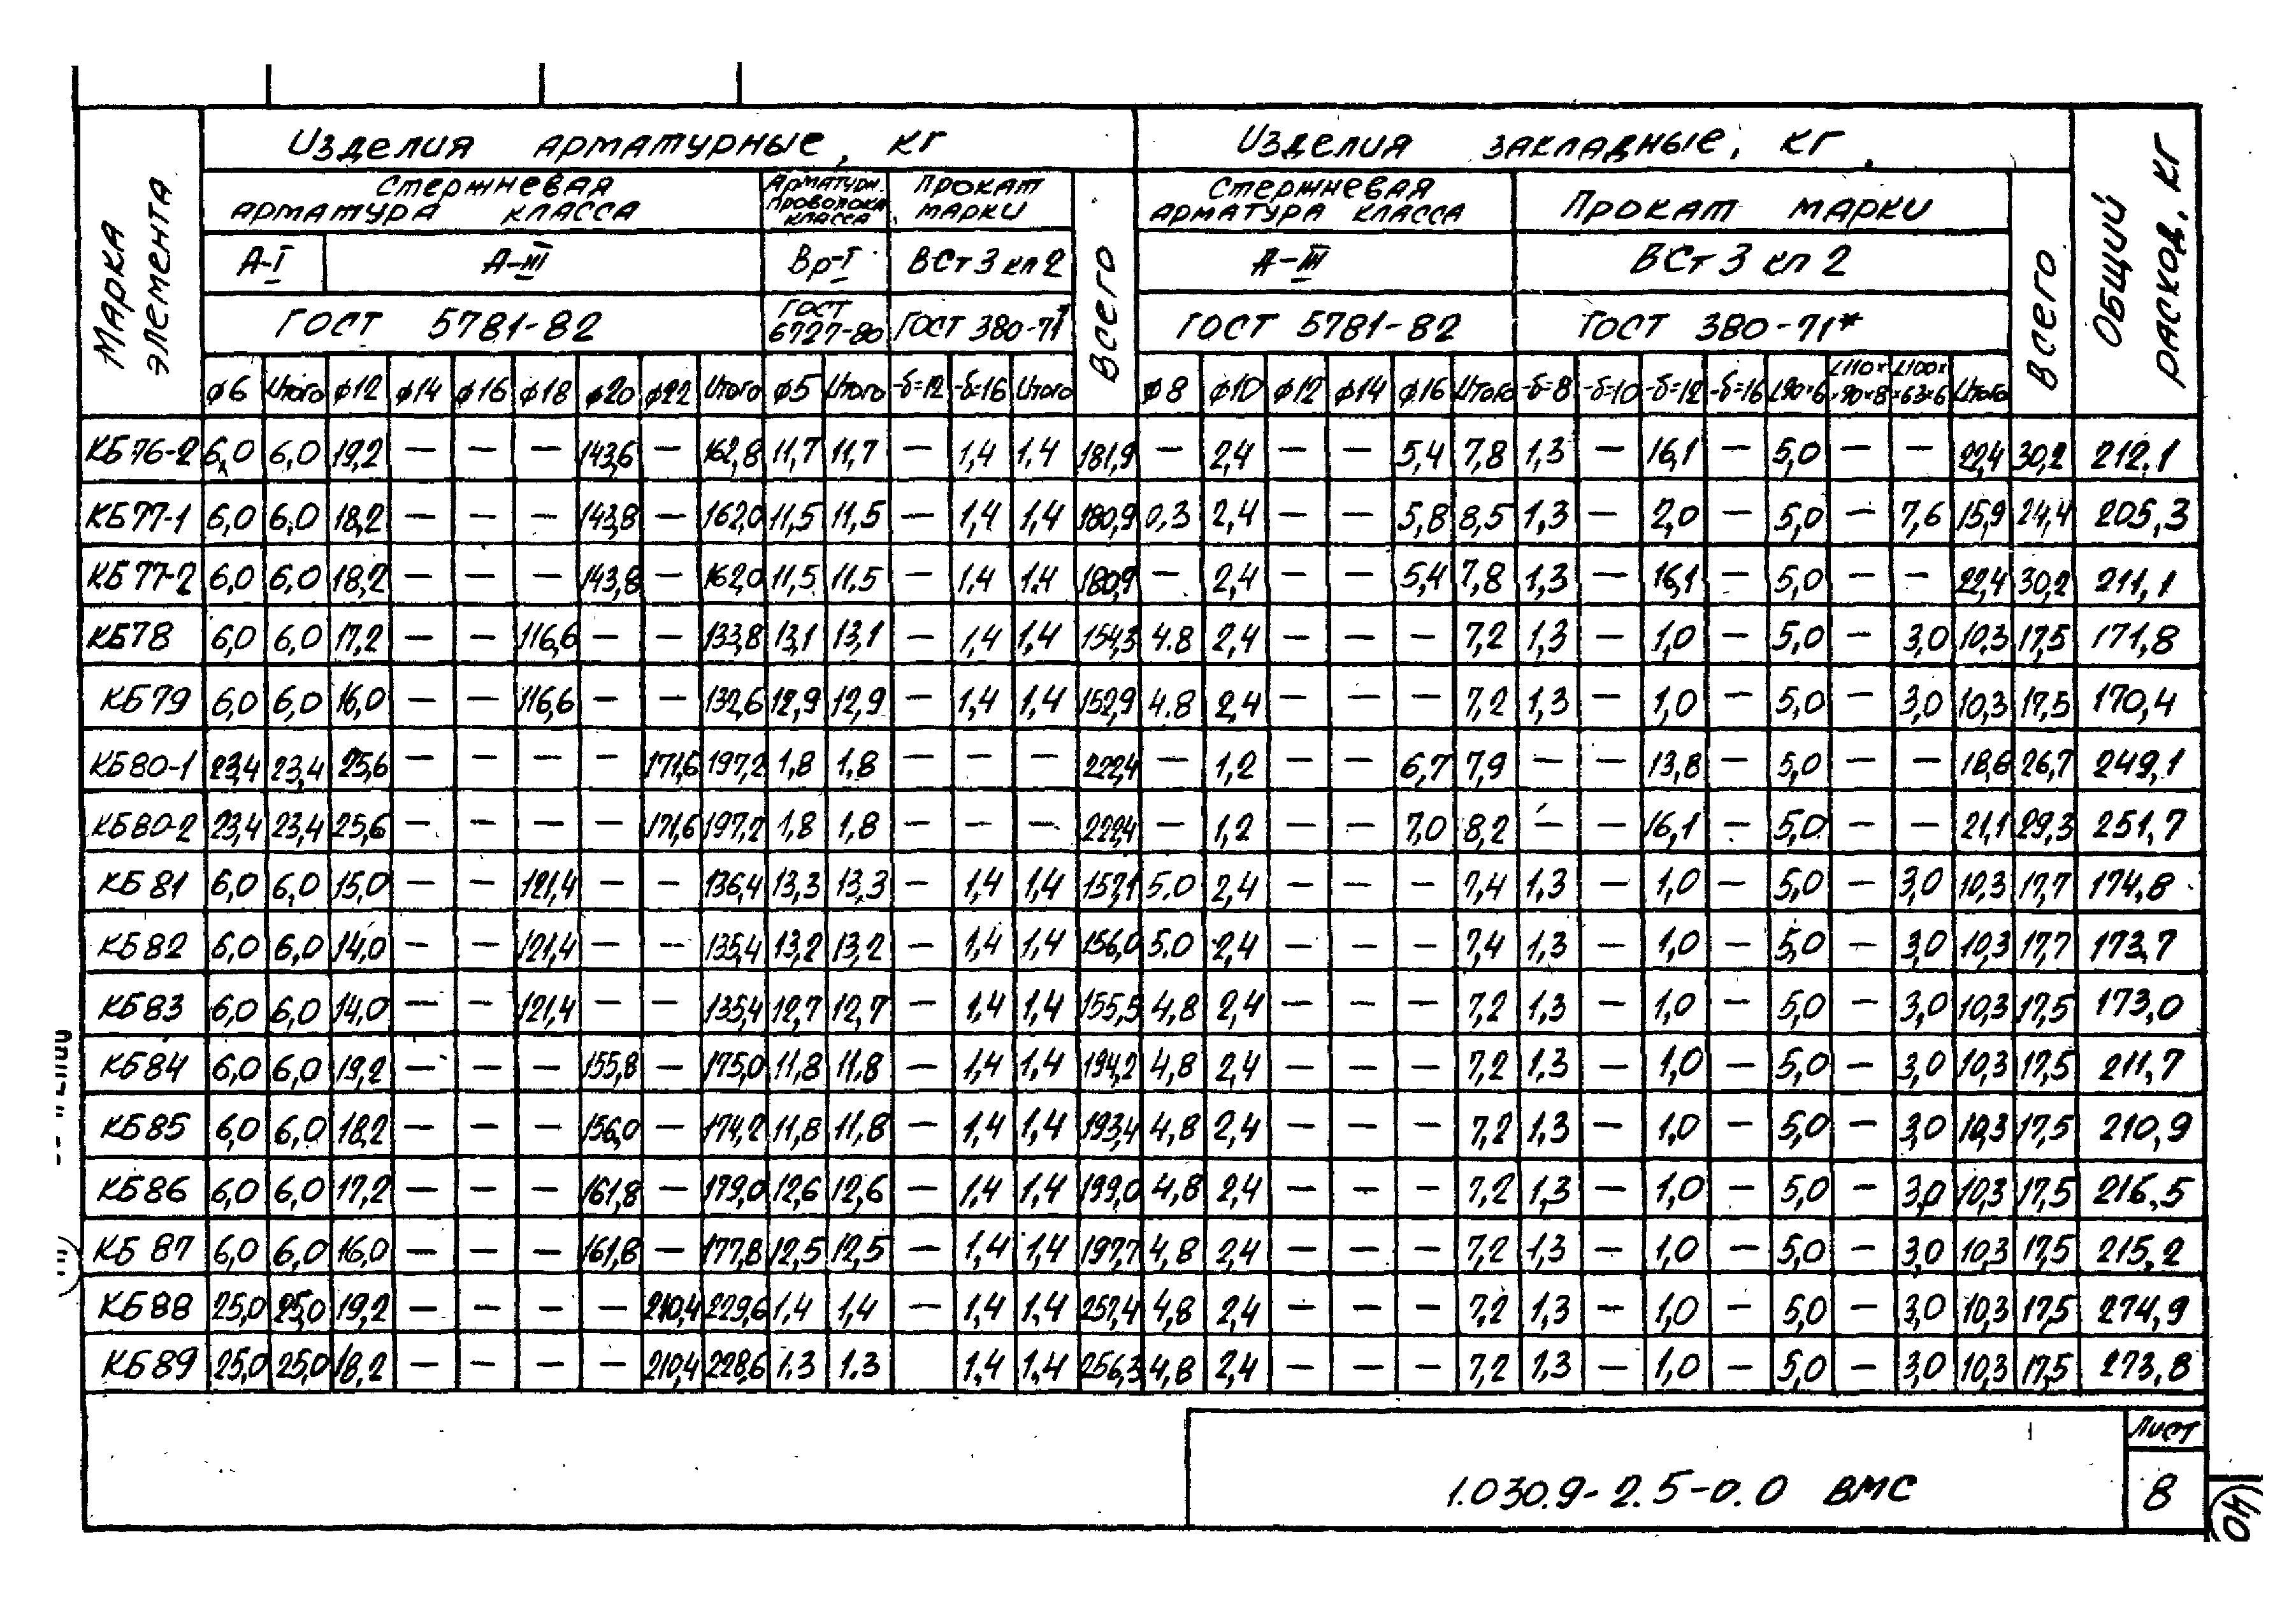 Марка элемента
Изделия арматурные, кг
Изделия закладные, кг
Общий расход, кг
Стержневая арматура класса
Арматурн. проволока класса
Прокат марки
Всего
Стержневая арматура класса
Прокат марки
Всего
А-I А-III Вр-I ВСт3кп2 А-III ВСт3кп2
ГОСТ 5781-82 ГОСТ 6727-80 ГОСТ 380-71* ГОСТ 5781-82 ГОСТ 380-71*
φ6 Итого φ12 φ14 φ16 φ18 φ20 φ22 Итого φ5 Итого -δ=12 -δ=16 Итого φ8 φ10 φ12 φ14 φ16 Итого -δ=8 -δ=10 -δ=12 -δ=16 L90×6 L110××90×8 L100××63×6 Итого
КБ76-2 6,0 6,0 19,2 — — — 143,6 — 162,8 11,7 11,7 — 1,4 1,4 181,9 — 2,4 — — 5,4 7,8 1,3 — 16,1 — 5,0 — — 22,4 30,2 212,1
КБ77-1 6,0 6,0 18,2 — — — 143,8 — 162,0 11,5 11,5 — 1,4 1,4 180,9 0,3 2,4 — — 5,8 8,5 1,3 — 2,0 — 5,0 — 7,6 15,9 24,4 205,3
КБ77-2 6,0 6,0 18,2 — — — 143,8 — 162,0 11,5 11,5 — 1,4 1,4 180,9 — 2,4 — — 5,4 7,8 1,3 — 16,1 — 5,0 — — 22,4 30,2 211,1
КБ78 6,0 6,0 17,2 — — 116,6 — — 133,8 13,1 13,1 — 1,4 1,4 154,3 4.8 2,4 — — — 7,2 1,3 — 1,0 — 5,0 — 3,0 10,3 17,5 171,8
КБ79 6,0 6,0 16,0 — — 116,6 — — 132,6 12,9 12,9 — 1,4 1,4 152,9 4.8 2,4 — — — 7,2 1,3 — 1,0 — 5,0 — 3,0 10,3 17,5 170,4
КБ80-1 23,4 23,4 25,6 — — — — 171,6 197,2 1,8 1,8 — — — 222,4 — 1,2 — — 6,7 7,9 — — 13,8 — 5,0 — — 18,8 26,7 249,1
КБ80-2 23,4 23,4 25,6 — — — — 171,6 197,2 1,8 1,8 — — — 222,4 — 1,2 — — 7,0 8,2 — — 16,1 — 5,0 — — 21,1 29,3 251,7
КБ81 6,0 6,0 15,0 — — 121,4 — — 136,4 13,3 13,3 — 1,4 1,4 157,1 5.0 2,4 — — — 7,4 1,3 — 1,0 — 5,0 — 3,0 10,3 17,7 174,8
КБ82 6,0 6,0 14,0 — — 121,4 — — 135,4 13,2 13,2 — 1,4 1,4 156,0 5.0 2,4 — — — 7,4 1,3 — 1,0 — 5,0 — 3,0 10,3 17,7 173,7
КБ83 6,0 6,0 14,0 — — 121,4 — — 135,4 12,7 12,7 — 1,4 1,4 155,5 4,8 2,4 — — — 7,2 1,3 — 1,0 — 5,0 — 3,0 10,3 17,5 173,0
КБ84 6,0 6,0 19,2 — — — 155,8 — 175,0 11,8 11,8 — 1,4 1,4 194,2 4,8 2,4 — — — 7,2 1,3 — 1,0 — 5,0 — 3,0 10,3 17,5 211,7
КБ85 6,0 6,0 18,2 — — — 156,0 — 174,2 11,8 11,8 — 1,4 1,4 193,4 4,8 2,4 — — — 7,2 1,3 — 1,0 — 5,0 — 3,0 10,3 17,5 210,9
КБ86 6,0 6,0 17,2 — — — 161,8 — 179,0 12,6 12,6 — 1,4 1,4 199,0 4,8 2,4 — — — 7,2 1,3 — 1,0 — 5,0 — 3,0 10,3 17,5 216,5
КБ87 6,0 6,0 16,0 — — — 161,8 — 177,8 12,5 12,5 — 1,4 1,4 197,7 4,8 2,4 — — — 7,2 1,3 — 1,0 — 5,0 — 3,0 10,3 17,5 215,2
КБ88 25,0 25,0 19,2 — — — — 210,4 229,6 1,4 1,4 — 1,4 1,4 257,4 4,8 2,4 — — — 7,2 1,3 — 1,0 — 5,0 — 3,0 10,3 17,5 274,9
КБ89 25,0 25,0 18,2 — — — — 210,4 228,6 1.3 1.3 1,4 1,4 256,3 4,8 2,4 — — — 7,2 1,3 — 1,0 — 5,0 — 3,0 10,3 17,5 273,8
1.030.9-2.5-0.0 ВМС
Лист
8
40